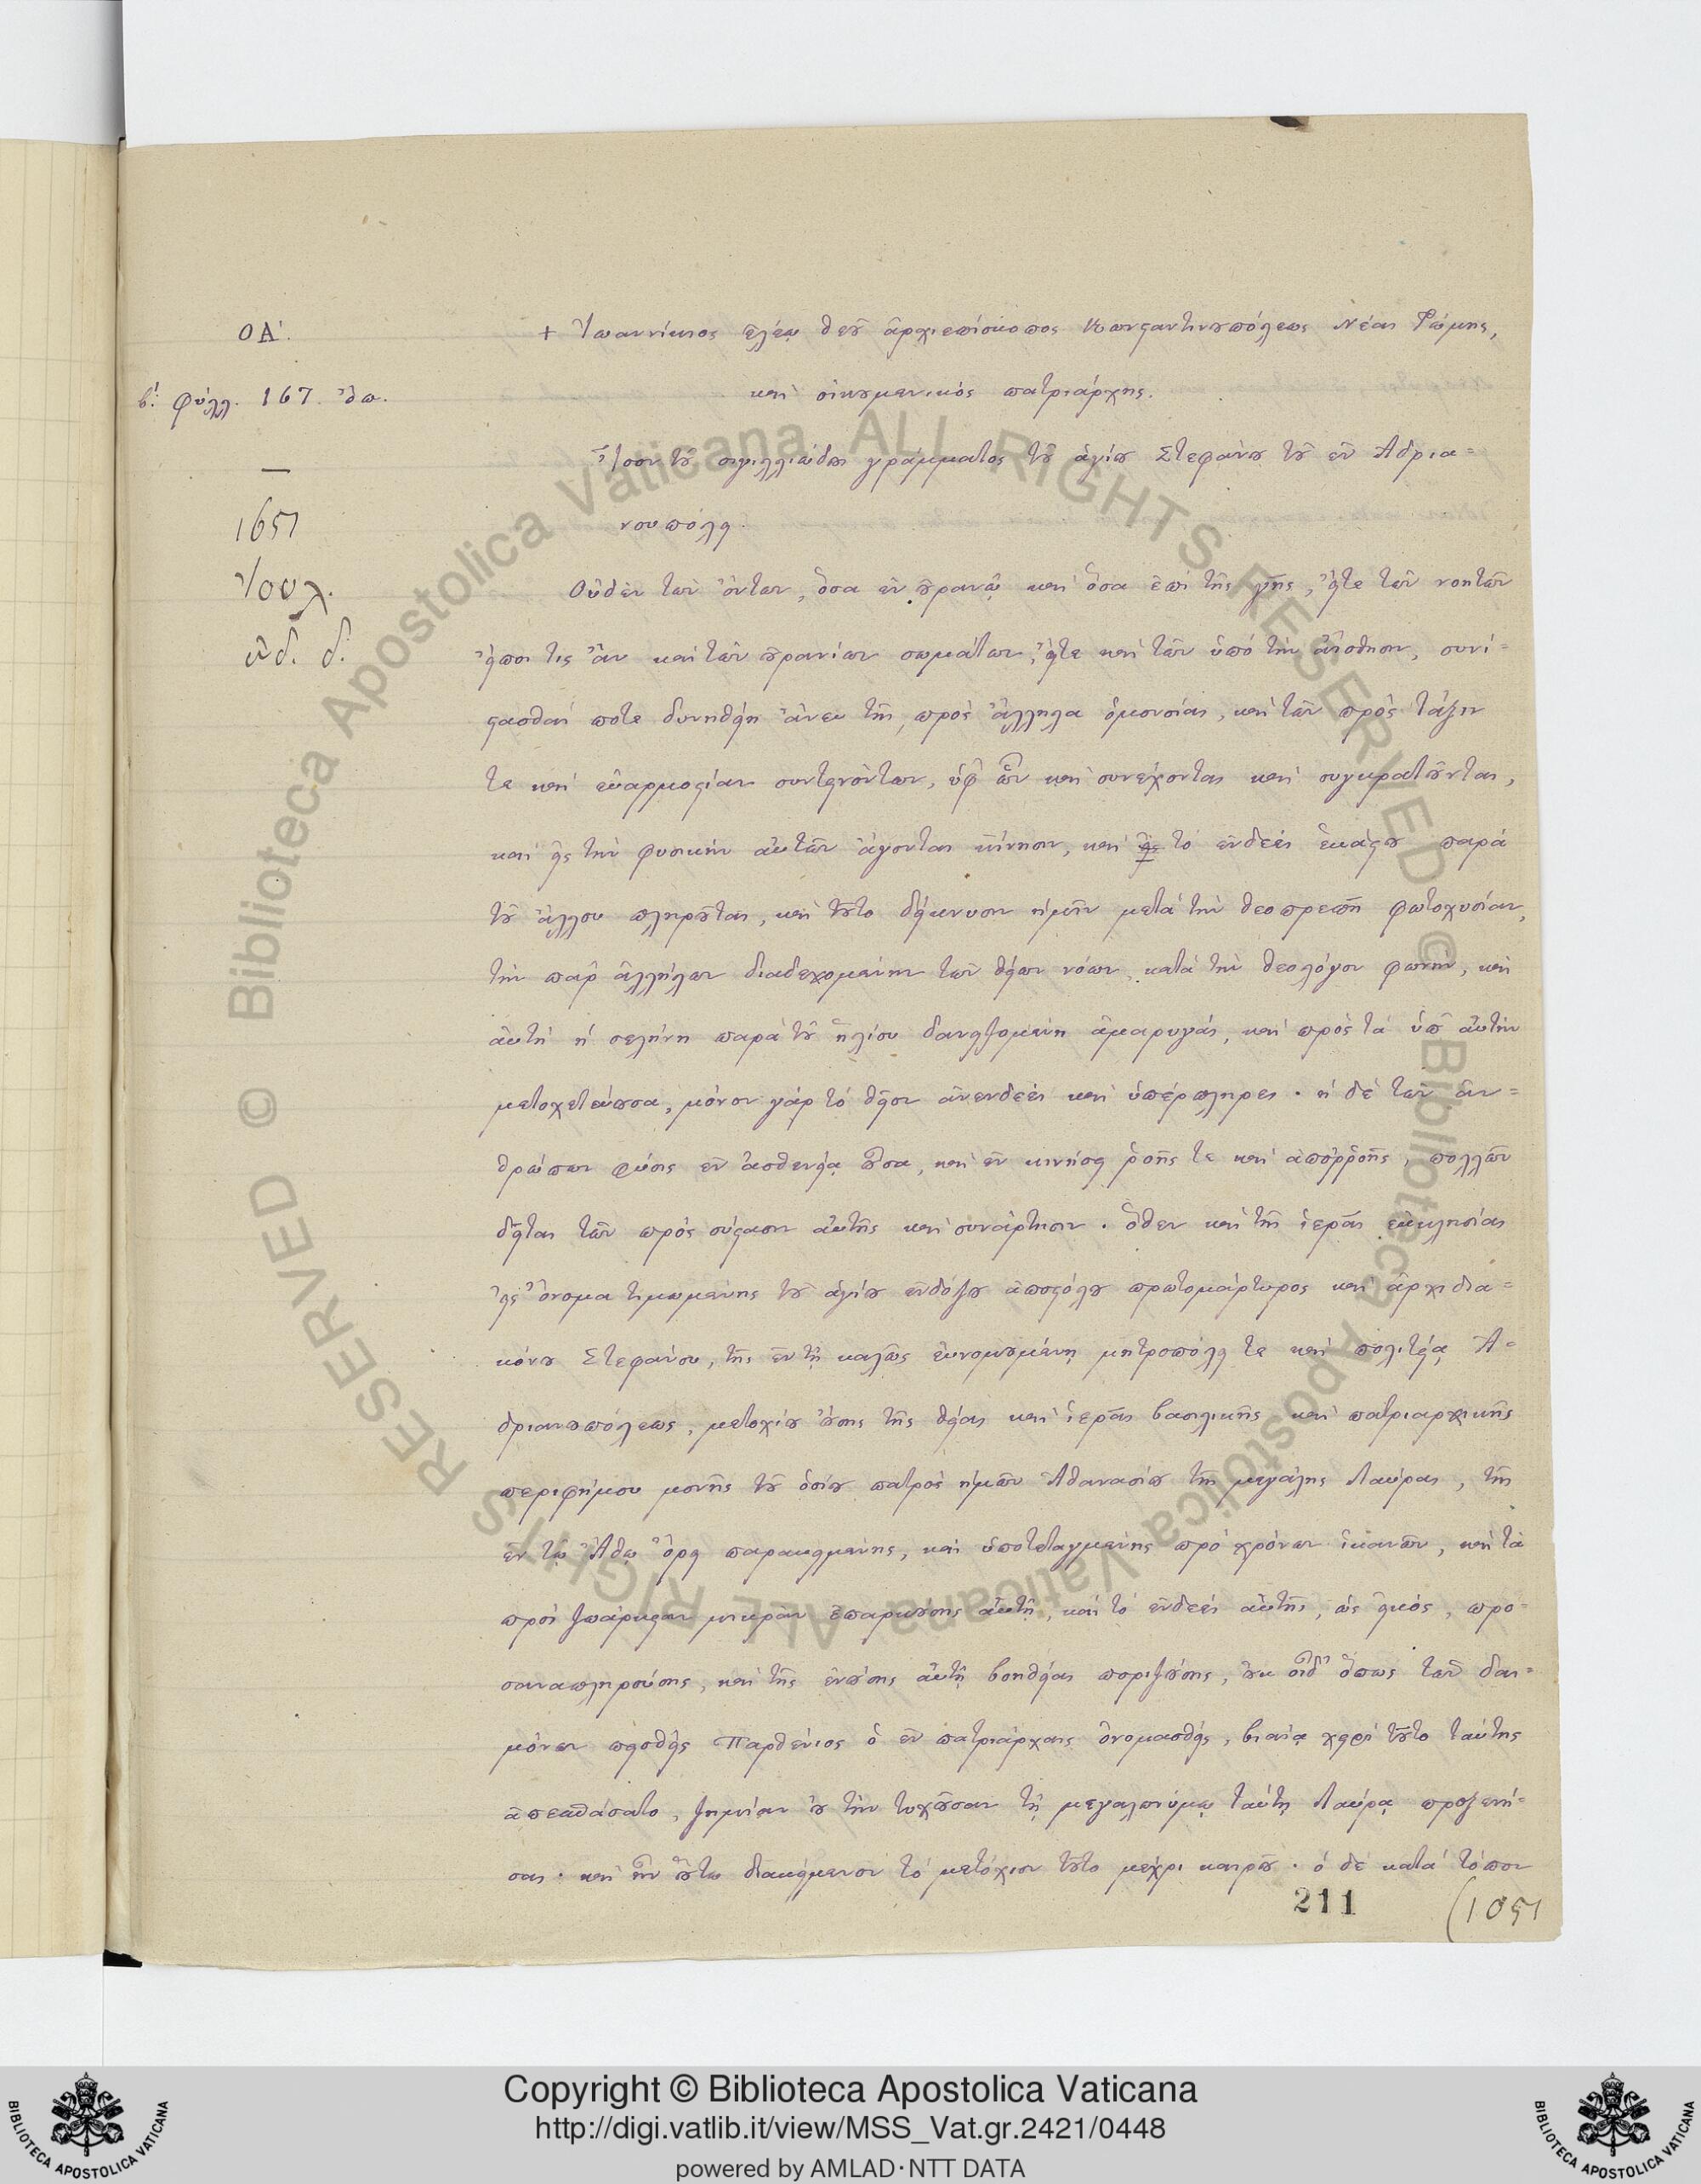 ΟΑ΄.
β΄. φύλλ. 167. ὄπ.
1651
Ἰουλ.
ἰνδ. δ΄.
+ Ἰωαννίκιος ἐλέῳ θεοῦ ἀρχιεπίσκοπος Κωνϛαντινουπόλεως Νέας Ῥώμης,
καὶ οἰκουμενικός πατριάρχης.
Ἴσον τοῦ σιγιλλιώδους γράμματος τοῦ ἁγίου Στεφάνου τοῦ ἐν Ἀδρια=
νουπόλει.
Οὐδὲν τῶν ὄντων, ὅσα ἐν οὐρανῷ καὶ ὅσα ἐπὶ τῆς γῆς, εἴτε τῶν νοητῶν
εἴποι τις ἂν καὶ τῶν οὐρανίων σωμάτων, εἴτε καὶ τῶν ὑπό τὴν αἴσθησιν, συνί=
ϛασθαί ποτε δυνηθείη ἄνευ τῆς πρός ἄλληλα ὁμονοίας, καὶ τῶν πρός τάξιν
τε καὶ εὐαρμοϛίαν συντεινόντων, ὑφ᾿ ὧν καὶ συνέχονται καὶ συγκρατοῦνται,
καὶ εἰς τὴν φυσικὴν αὐτῶν ἄγονται κίνησιν, καὶ εἰς τό ἐνδεές ἑκάϛου παρά
τοῦ ἄλλου πληροῦται, καὶ τοῦτο δείκνυσιν ἡμῖν μετά τὴν θεοπρεπῆ φωτοχυσίαν,
τὴν παρ᾿ ἀλλήλων διαδεχομένην τῶν θείων νόων, κατά τὴν θεολόγον φωνήν, καὶ
αὐτή ἡ σελήνη παρά τοῦ ἡλίου δανειζομένη ἀμαρυγάς, καὶ πρός τά ὑπ᾿ αὐτήν
μετοχετεύουσα, μόνον γάρ τό θεῖον ἀνενδεές καὶ ὑπέρπληρες · ἡ δέ τῶν ἀν=
θρώπων φύσις ἐν ἀσθενείᾳ οὖσα, καὶ ἐν κινήσει ῥοῆς τε καὶ ἀποῤῥοῆς, πολλῶν
δεῖται τῶν πρός σύϛασιν αὐτῆς καὶ συνάρτησιν · ὅθεν καὶ τῆς ἱερᾶς ἐκκλησίας
εἰς ὄνομα τιμωμένης τοῦ ἁγίου ἐνδόξου ἀποϛόλου πρωτομάρτυρος καὶ ἀρχιδια=
κόνου Στεφάνου, τῆς ἐν τῇ καλῶς εὐνομουμένῃ μητροπόλει τε καὶ πολιτείᾳ Ἀ=
δριανουπόλεως, μετοχίου οὔσης τῆς θείας καὶ ἱερᾶς βασιλικῆς καὶ πατριαρχικῆς
περιφήμου μονῆς τοῦ ὁσίου πατρός ἡμῶν Ἀθανασίου τῆς μεγάλης Λαύρας, τῆς
ἐν τῷ Ἄθῳ ὄρει παρακειμένης, καὶ ὑποτεταγμένης πρό χρόνων ἱκανῶν, καὶ τά
πρός ζωάρκειαν μικράν ἐπαρκούσης αὐτῇ, καὶ τό ἐνδεές αὐτῆς, ὡς εἰκός, προ=
σαναπληρούσης, καὶ τῆς ἐνούσης αὐτῇ βοηθείας ποριζούσης, οὐκ οἶδ᾿ ὅπως τῶν δαι=
μόνων πεισθείς Παρθένιος ὁ ἐν πατριάρχαις ὀνομασθείς, βιαίᾳ χειρί τοῦτο ταύτης
ἀπεσπάσατο, ζημίαν οὐ τὴν τυχοῦσαν τῇ μεγαλωνύμῳ ταύτῃ Λαύρᾳ προξενή=
σας · καὶ ἦν οὕτω διακείμενον τό μετόχιον τοῦτο μέχρι καιροῦ · ὁ δέ κατά τόπον
211
(1051
Copyright © Biblioteca Apostolica Vaticana
http://digi.vatlib.it/view/MSS_Vat.gr.2421/0448
powered by AMLAD·NTT DATA